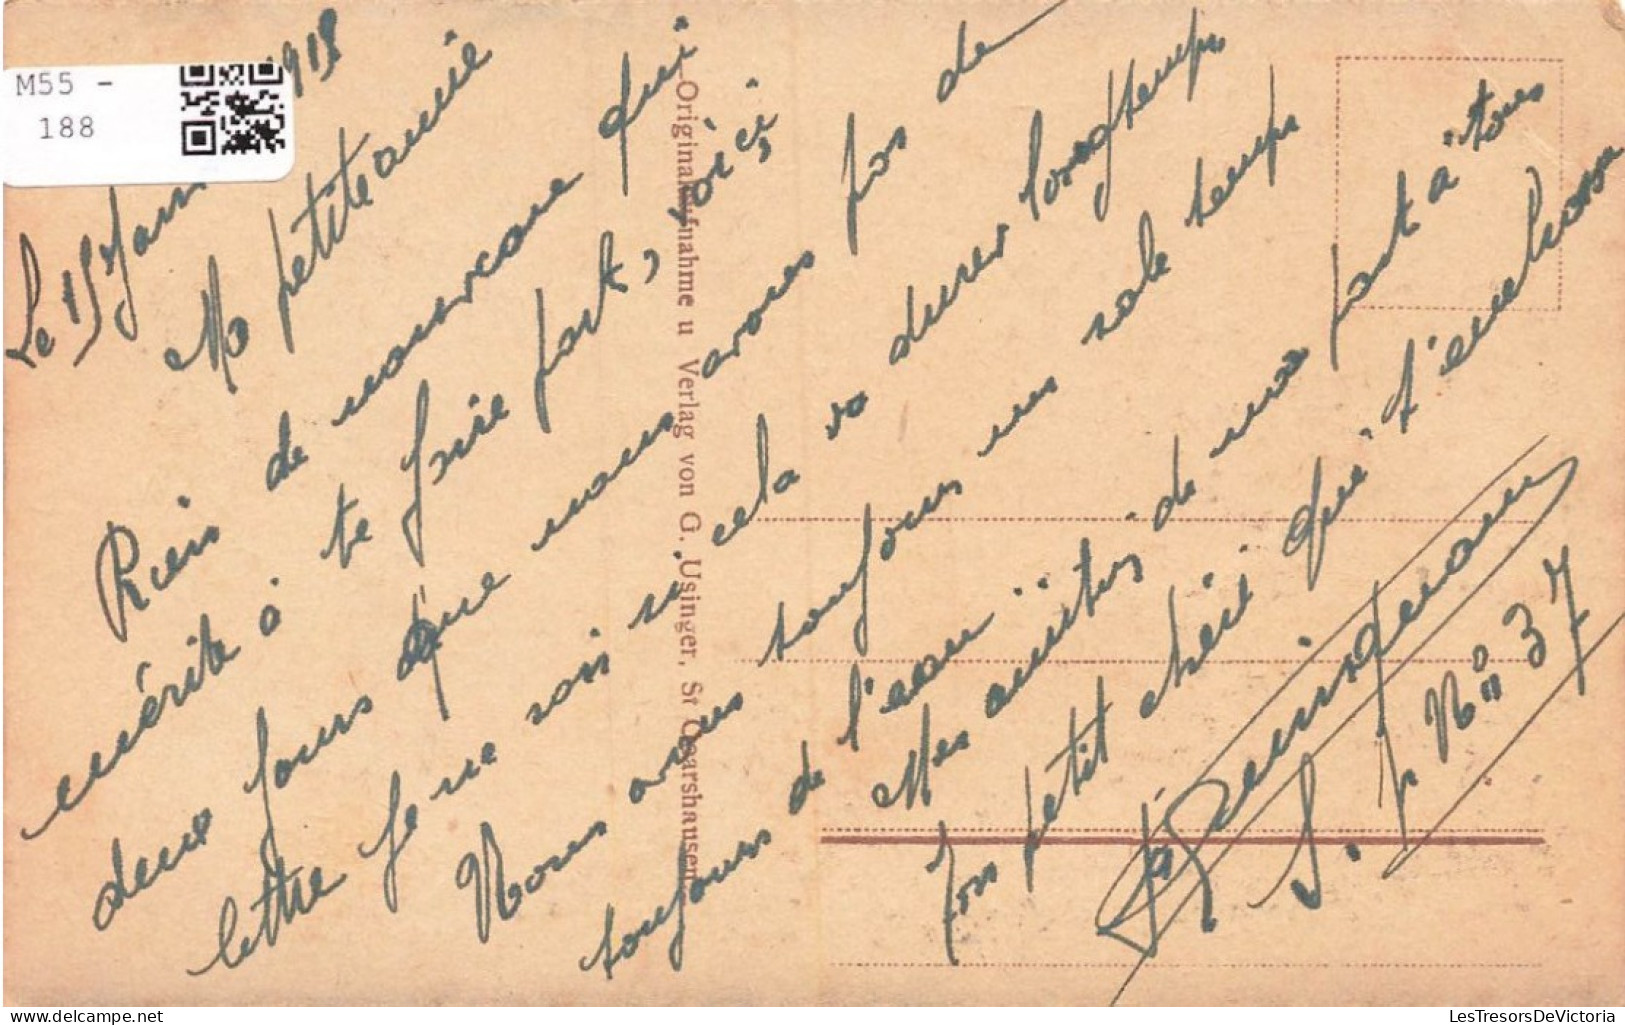 M55 -
188
Le 15 Jan 1918
Ma petite amie
Rien de nouveau qui
mérite à te faire part, voici
deux jours que nous avons pas de
lettre je ne sais si cela va durer longtemps
Nous avons toujours un sale temps
toujours de l'eau
Mes amitiés de ma part à tous
Ton petit chéri qui t'embrasse
S. P. No 37
Originalaufnahme u Verlag von G. Usinger, St Goarshausen
LesTresorsDeVictoria
delcampe.net